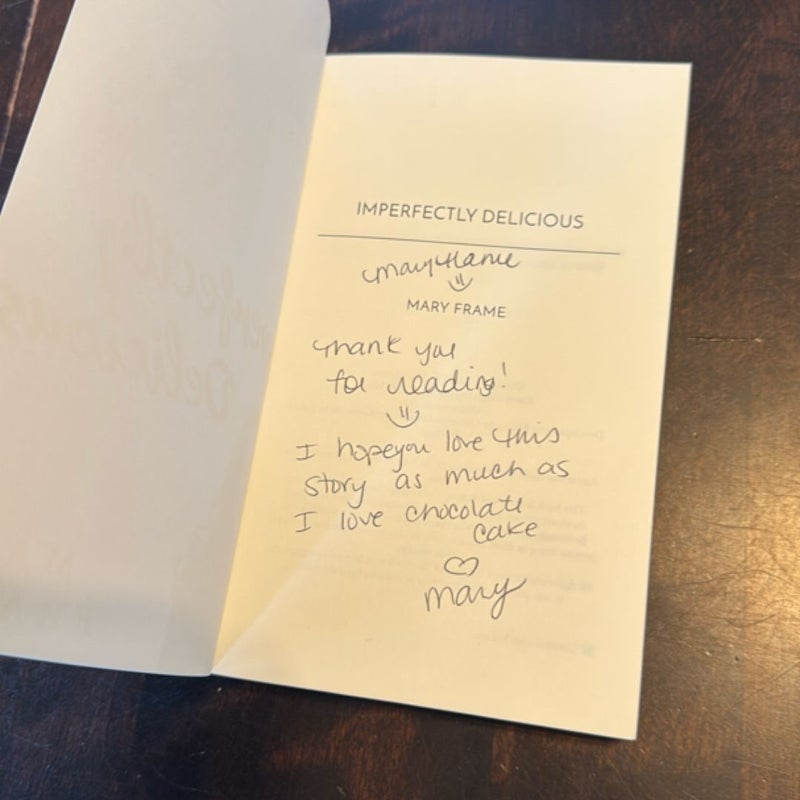 IMPERFECTLY DELICIOUS
Mary Frame
MARY FRAME
Thank you
for reading!
I hope you love this
story as much as
I love chocolate
cake
Mary